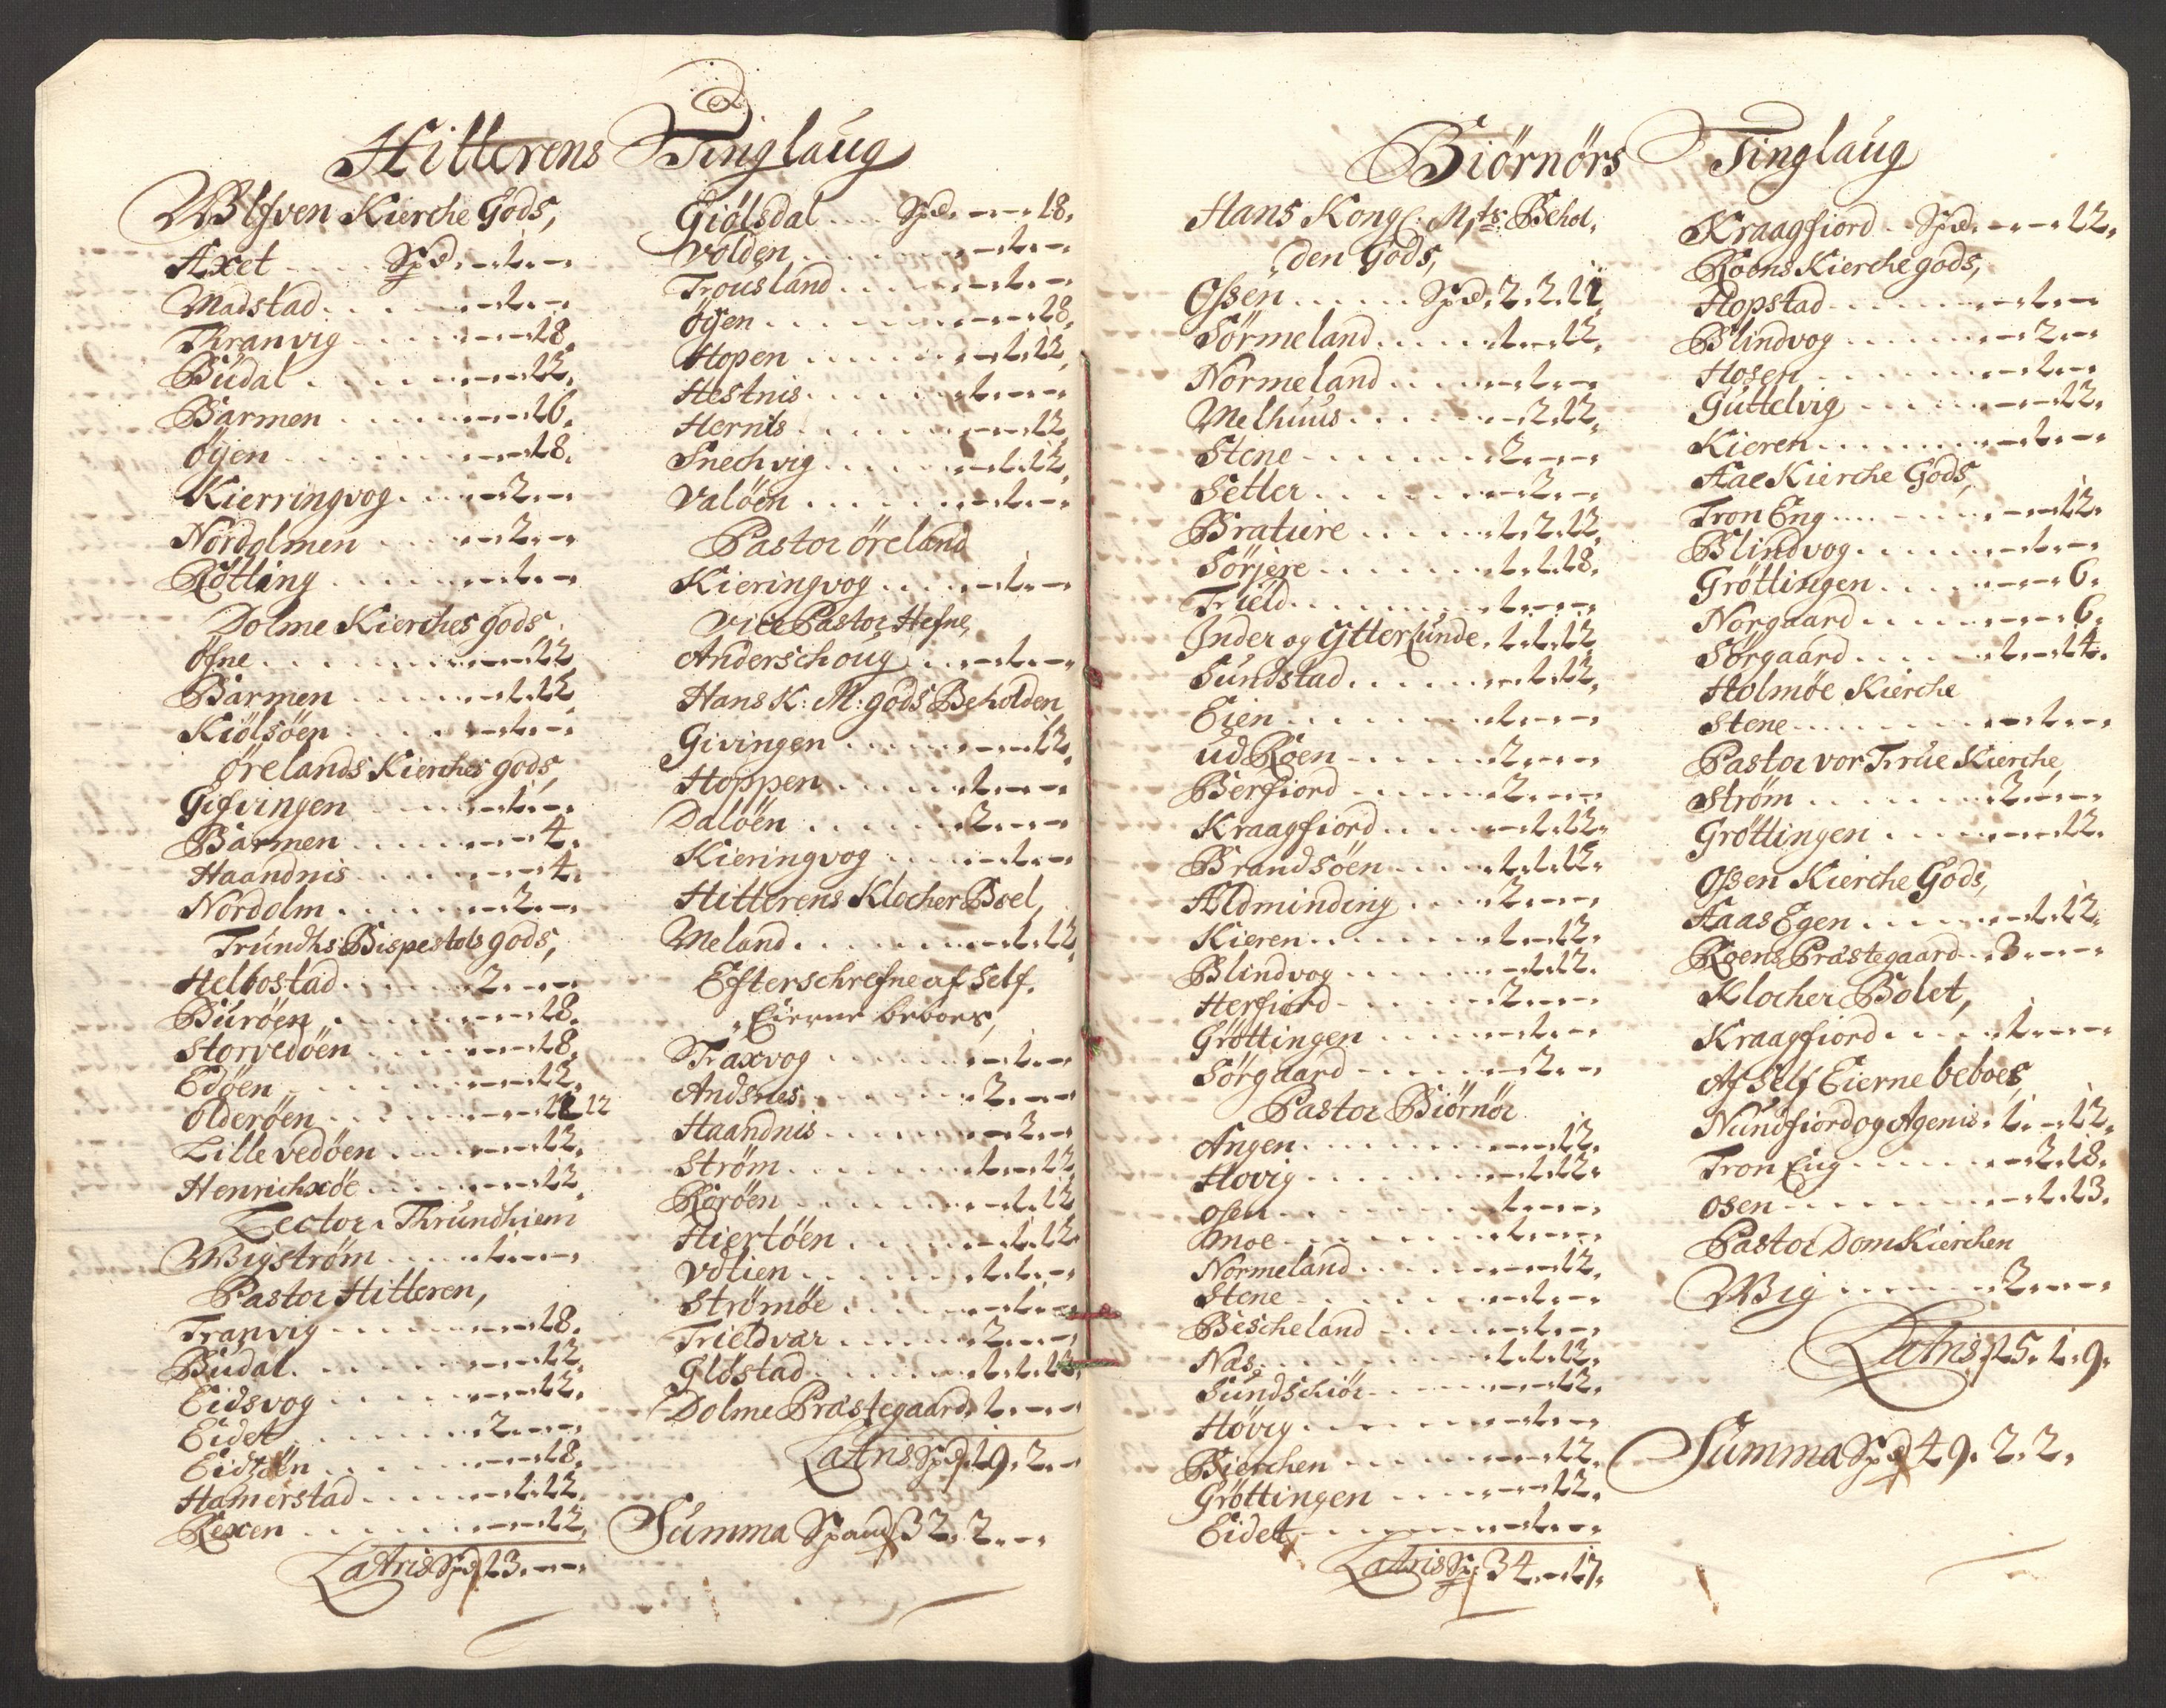 Hitterens Tinglaug
Wlfven Kierche Gods,
Axet . . . . Spd. – 1. –
Madstad . . . . – 1. –
Thranvig . . . . – – 18.
Budal . . . . – – 12.
Barmen . . . . – – 16.
Öyen . . . . – – 18.
Kierringvog . . . – 2. –
Nordolmen . . . – 2. –
Røtting . . . . – 1. –
Dolme Kierches gods,
Öfne . . . . – – 12
Barmen . . . . – 1. 12
Kiölsöen . . . . – 1. –
Örelands Kierches gods,
Gifvingen . . . – 1. –
Barmen . . . . – – 4.
Haandnis . . . . – – 4.
Nordolm . . . . – 2. –
Trundhs Bispestols gods,
Helbostad . . . . 2. – –
Buröen . . . . – – 18.
Storvedöen . . . – – 18.
Edöen . . . . – – 12.
Olderöen . . . . – – 12
Lille vedöen . . . – – 12.
Henrichxöe . . . – – 12.
Lector i Thrundhiem
Wigström . . . . 1. – –
Pastor Hitteren,
Tranvig . . . . – – 18.
Budal . . . . – – 12.
Eidsvog . . . . – – 12.
Eidet . . . . 2. – –
Eidzöen . . . . – – 18.
Hamerstad . . . . – 1. 12.
Rexen . . . . – – 12.
Latris Spd 13. – –
Giölsdal . . . Spd. – – 18.
Volden . . . . – 1. –
Trousland . . . . – 1. –
Öyen . . . . – – 18.
Hopen . . . . – 1. 12.
Hestnis . . . . 1. – –
Hernis . . . . – – 12
Snechvig . . . . – 1. 12.
Valöen . . . . – 1. –
Pastor Öreland
Kieringvog . . . – 1. –
Vice Pastor Hefne,
Anderschoug . . . – 1. –
Hans K: M: gods Beholden
Givingen . . . . – – 12.
Hoppen . . . . 1. – –
Dalöen . . . . 2. – –
Kieringvog . . . – 1. –
Hitterens Klocher Boel,
Meland . . . . – 1. 12
Efterschrefne af Self.
Eierne beboes,
Traxvog . . . . – 1. –
Andsnes . . . . 2. – –
Haandnis . . . . – 2. –
Ström . . . . 1. – 12
Roröen . . . . – 1. 12
Hiertöen . . . . – 1. 12
Volien . . . . 1. 1. –
Strömöe . . . . – 1. –
Trieldvar . . . . 2. – –
Glöstad . . . . 1. 1. 12.
Dolme Præstegaard. 1. – –
Latris Spd 19. 2. –
Summa Spand 32. 2. –
Biörnörs Tinglaug
Hans Kongl: Mts: Behol.
den Gods,
Ossen . . . . Spd. 2. 2. 11
Sörmeland . . . . 1. – 12.
Normeland . . . . – 1. –
Melhuus . . . . – 2. 12.
Stene . . . . 2. – –
Setter . . . . – 2. –
Brature . . . . 1. 2. 12.
Sörjere . . . . 1. 1. 18.
Trield . . . . 1. – –
Inder og Ytter Sunde. 1. 1. 12
Sundstad . . . . – 1. 12.
Eien . . . . 1. – –
ud Roen . . . . 2. – –
Berfiord . . . . 2. – –
Kraagfiord . . . – 1. 12.
Brandsöen . . . 1. 1. 12.
Aldminding . . . 2. – –
Kieren . . . . 1. – 12.
Blindvog . . . . – 1. 12.
Herfiord . . . . 2. – –
Gröttingen . . . – 1. –
Sörgaard . . . . – 2. –
Pastor Biörnör
Angen . . . . – – 12.
Hovig . . . . – 1. 12.
Osen . . . . 1. – –
Moe . . . . 1. – –
Normeland . . . . – – 12.
Stene . . . . – 1. –
Bescheland . . . . – 1. –
Nas . . . . 1. 1. 12.
Sundschiör . . . – – 12.
Hövig . . . . – 1. –
Bierchen . . . . – – 12.
Gröttingen . . . – – 12.
Eidet . . . . – 1. –
Latris Sp: 34. – 17.
Kraagfiord . . Spd. – – 12.
Roens Kierche gods,
Hopstad . . . . – 1. –
Blindvog . . . . – 2. –
Hosen . . . . – 1. –
Guttelvig . . . . – – 12.
Kieren . . . . – 1. –
Aae Kierche Gods,
Tron Eng . . . . – – 12.
Blindvog . . . . – 1. –
Gröttingen . . . – – 6.
Norgaard . . . . – – 6.
Sörgaard . . . . 1. – 14.
Holmöe Kierche
Stene . . . . – 1. –
Pastor vor Frue Kierche,
Ström . . . . 2. – –
Gröttingen . . . – – 12.
Ossen Kierche Gods,
Aaas Egen . . . . – 1. 12.
Roens Præstegaard . . 3. – –
Klocher Bolet,
Kraagfiord . . . 1. – –
Af Self Eierne beboes
Nundfiord og Agenis. 1. – 12.
Tron Eng . . . . – 2. 18.
Osen . . . . – 1. 13.
Pastor Dom Kierchen
Wiig . . . . 2. – –
Latris 15. 1. 9.
Summa Spd 49. 2. 2.